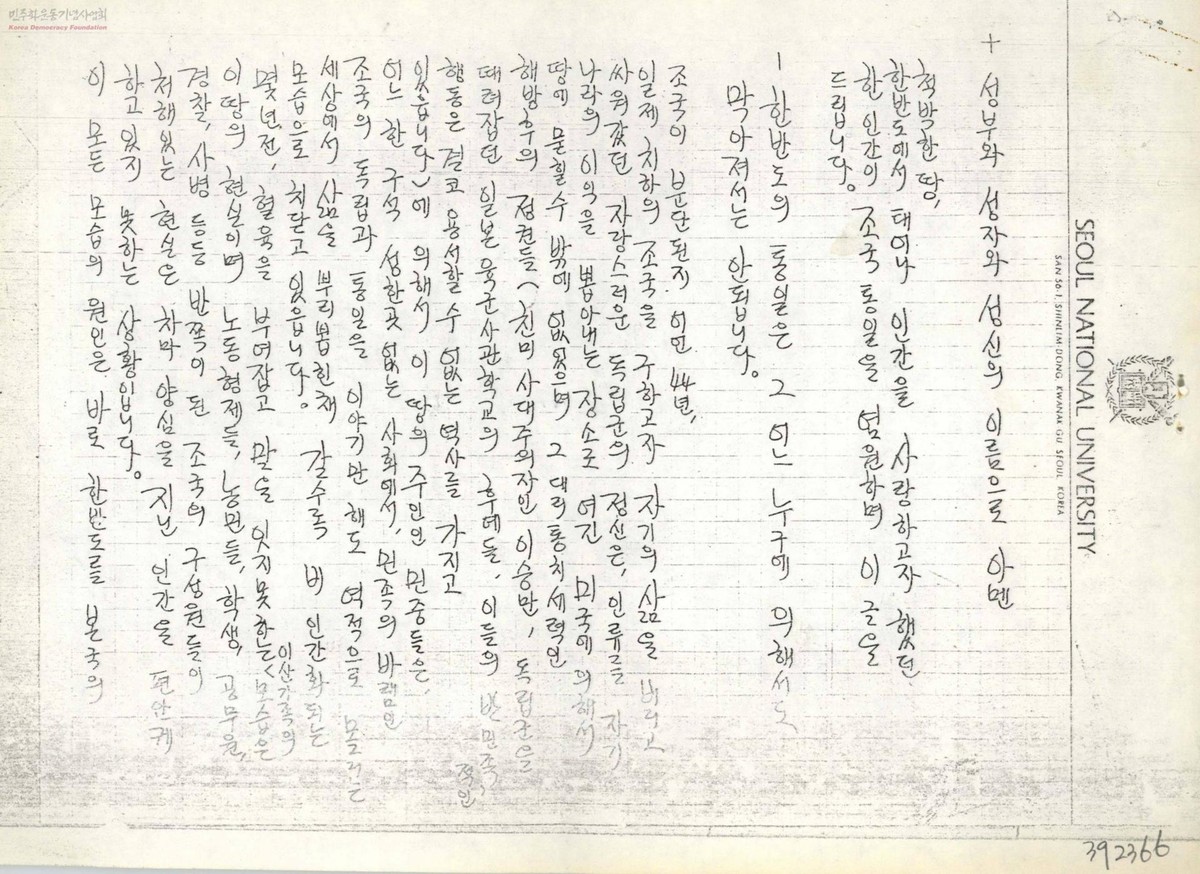 민주화운동기념사업회
Korea Democracy Foundation
SEOUL NATIONAL UNIVERSITY
SAN 56-1, SHINLIM-DONG KWANAK GU SEOUL KOREA
+ 성부와 성자와 성신의 이름으로 아멘
척박한 땅,
한반도에서 태어나 인간을 사랑하고자 했던
한 인간이 조국 통일을 염원하며 이 글을
드립니다.
- 한반도의 통일은 그 어느 누구에 의해서도
막아져서는 안됩니다.
조국이 분단된지 어언 44년,
일제 치하의 조국을 구하고자 자기의 삶을 버리고
싸워갔던 자랑스러운 독립군의 정신은, 인류를 자기
나라의 이익을 뽑아내는 장소로 여긴 미국에 의해서
땅에 묻힐수 밖에 없었으며 그 대리통치세력인
해방후의 정권들 (친미 사대주의자인 이승만, 독립군을
때려잡던 일본 육군사관학교의 후예들, 이들의 반민족적인
행동은 결코 용서할 수 없는 역사를 가지고
있읍니다)에 의해서 이 땅의 주인인 민중들은,
어느 한 구석 성한곳 없는 사회에서, 민족의 바램인
조국의 독립과 통일을 이야기만 해도 역적으로 몰리는
세상에서 삶을 뿌리뽑힌채 갈수록 비 인간화되는
모습으로 치닫고 있읍니다.
몇년전, 혈육을 부여잡고 말을 잇지못하는 이산가족의 모습은
이 땅의 현실이며 노동형제들, 농민들, 학생, 공무원,
경찰, 사병 등등 반쪽이 된 조국의 구성원들이
처해있는 현실은 차마 양심을 지닌 인간을 편안케
하고 있지 못하는 상황입니다.
이 모든 모습의 원인은 바로 한반도를 본국의
392366